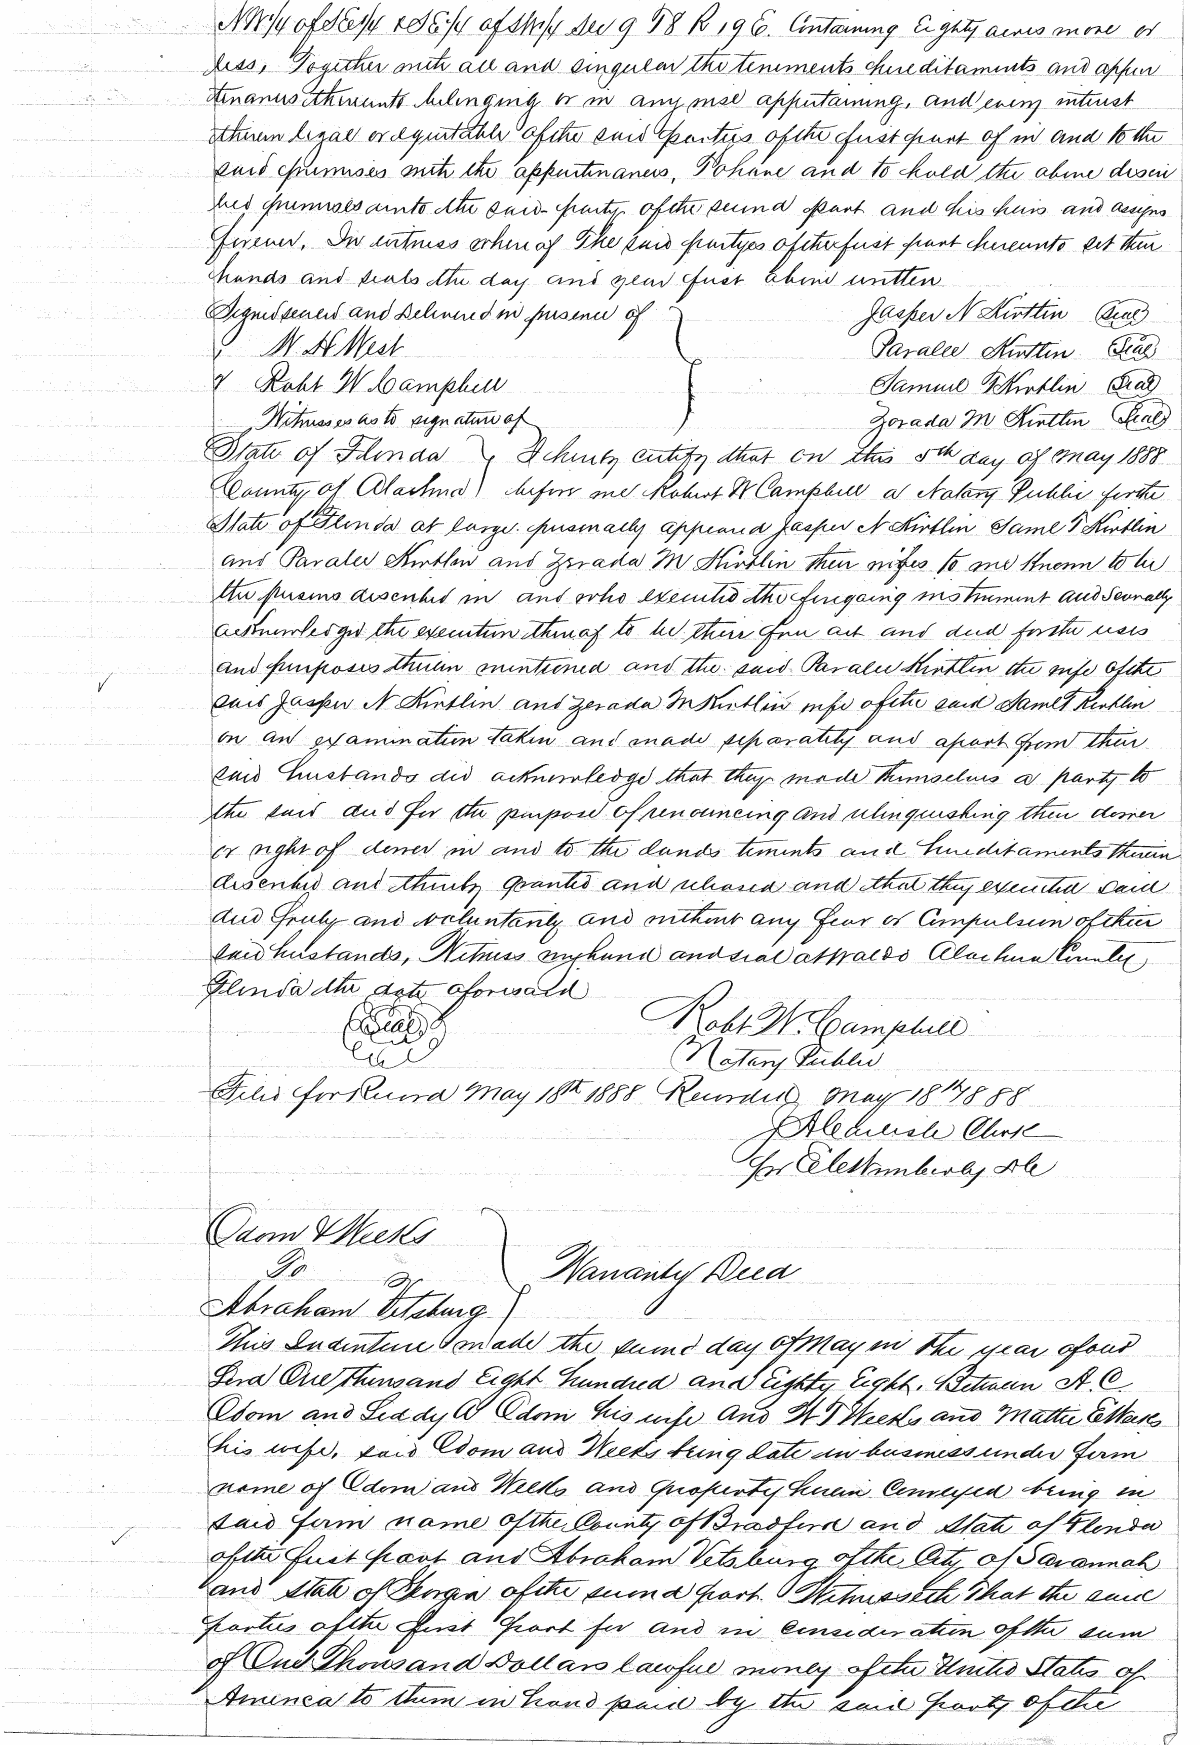 NW¼ of SE¼ & SE¼ of SW¼ Sec 9 T8 R 19 E. Containing Eighty acres more or
less, Together with all and singular the tenements hereditaments and appur
tenances thereunto belonging or in any wise appertaining, and every interest
therein legal or equitable of the said parties of the first part of in and to the
said premises with the appurtenances, To have and to hold the above descri
bed premises unto the said party of the second part and his heirs and assigns
forever. In witness where of The said partyes of the first part hereunto set their
hands and seals the day and year first above written
Signed sealed and Delivered in presence of
Jasper N Kirtlin (Seal)
W. H West
Paralee Kirtlin (Seal)
& Robt W Campbell
Samuel T Kirtlin (Seal)
Witnesses as to signature of
Zorada M Kirtlin (Seal)
State of Florida } I hereby certify that on this 5th day of May 1888
County of Alachua } before me Robert W Campbell a Notary Public for the
State of Florida at large personally appeared Jasper N Kirtlin Saml T Kirtlin
and Paralee Kirtlin and Zorada M Kirtlin their wifes to me known to be
the persons described in and who executed the foregoing instrument and severally
acknowledged the execution thereof to be their free act and deed for the uses
and purposes therein mentioned and the said Paralee Kirtlin the wife of the
said Jasper N Kirtlin and Zorada M Kirtlin wife of the said Saml T Kirtlin
on an examination taken and made separately and apart from their
said husbands did acknowledge that they made themselves a party to
the said deed for the purpose of renouncing and relinquishing their dower
or right of dower in and to the lands tenments and hereditaments therein
described and thereby granted and released and that they executed said
deed freely and voluntarily and without any fear or Compulsion of their
said husbands, Witness my hand and seal at Waldo Alachua County
Florida the date aforesaid
(Seal)
Robt W. Campbell
Notary Public
Filed for Record May 18th 1888 Recorded May 18th 1888
Clerk
Odom & Weeks
To
Warranty Deed
Abraham Vetsburg
This Indenture made the second day of May in the year of our
Lord One Thousand Eight hundred and Eighty Eight. Between A. C.
Odom and Liddy A Odom his wife and W T Weeks and Mattie E Weeks
his wife, said Odom and Weeks being late in business under firm
name of Odom and Weeks and property herein Conveyed being in
said firm name of the County of Bradford and State of Florida
of the first part and Abraham Vetsburg of the City of Savannah
and State of Georgia of the second part. Witnesseth That the said
parties of the first part for and in consideration of the sum
of One Thousand Dollars lawful money of the United States of
America to them in hand paid by the said party of the